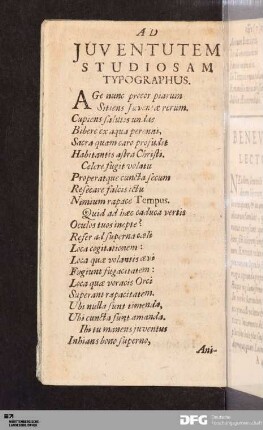 AD
JUVENTUTEM
STUDIOSAM
TYPOGRAPHUS.
AGe nunc precor piarum
Sitiens juventa rerum,
Cupiens salutis undae
Bibere ex aqua perenni,
Sacra quam caro profudit
Habitantis astra Christi.
Celere fugit volatu
Properatque cuncta secum
Resecare falcis ictu
Nimium rapace Tempus.
Quid ad haec caduca vertis
Oculos tuos inepte?
Refer ad superna coeli
Loca cogitationem:
Loca quae volantis aevi
Fugiunt fugacitatem:
Loca quae voracis Orci
Superant rapacitatem.
Ubi nulla sunt timenda,
Ubi cuncta sunt amanda.
Ibi tu manens juventus
Inhians bono superno,
Ani-
BENEV
LECTO
DFG
Deutsche
Forschungsgemeinschaft